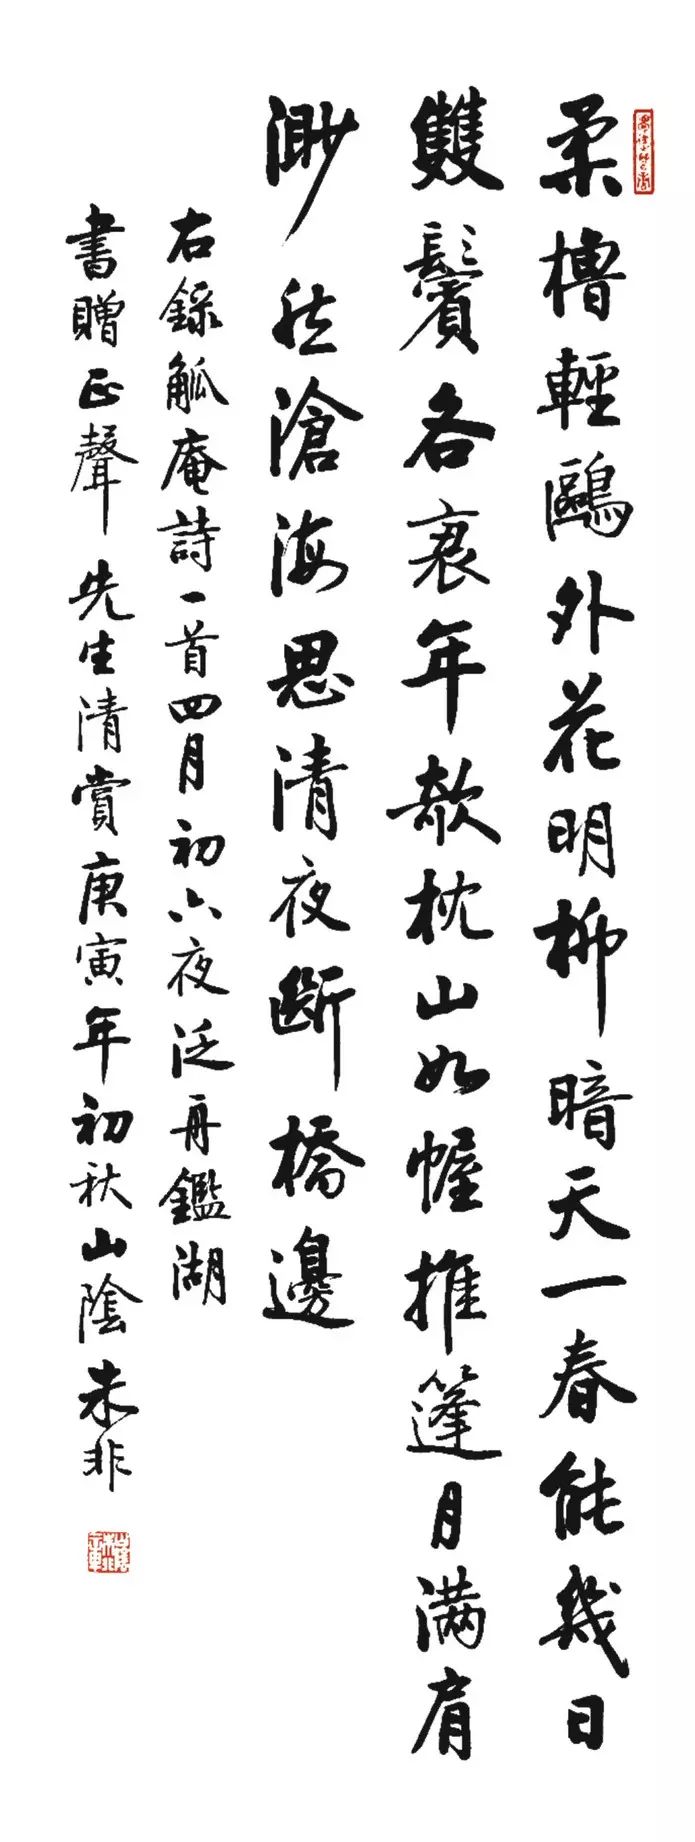 柔櫓輕鷗外花明柳暗天一春能幾日
雙鬢各衰年欹枕山如幄推篷月滿肩
渺然滄海思清夜斷橋邊
右錄觚庵詩一首四月初六夜泛舟鑑湖
書贈正聲先生清賞庚寅年初秋山陰朱非